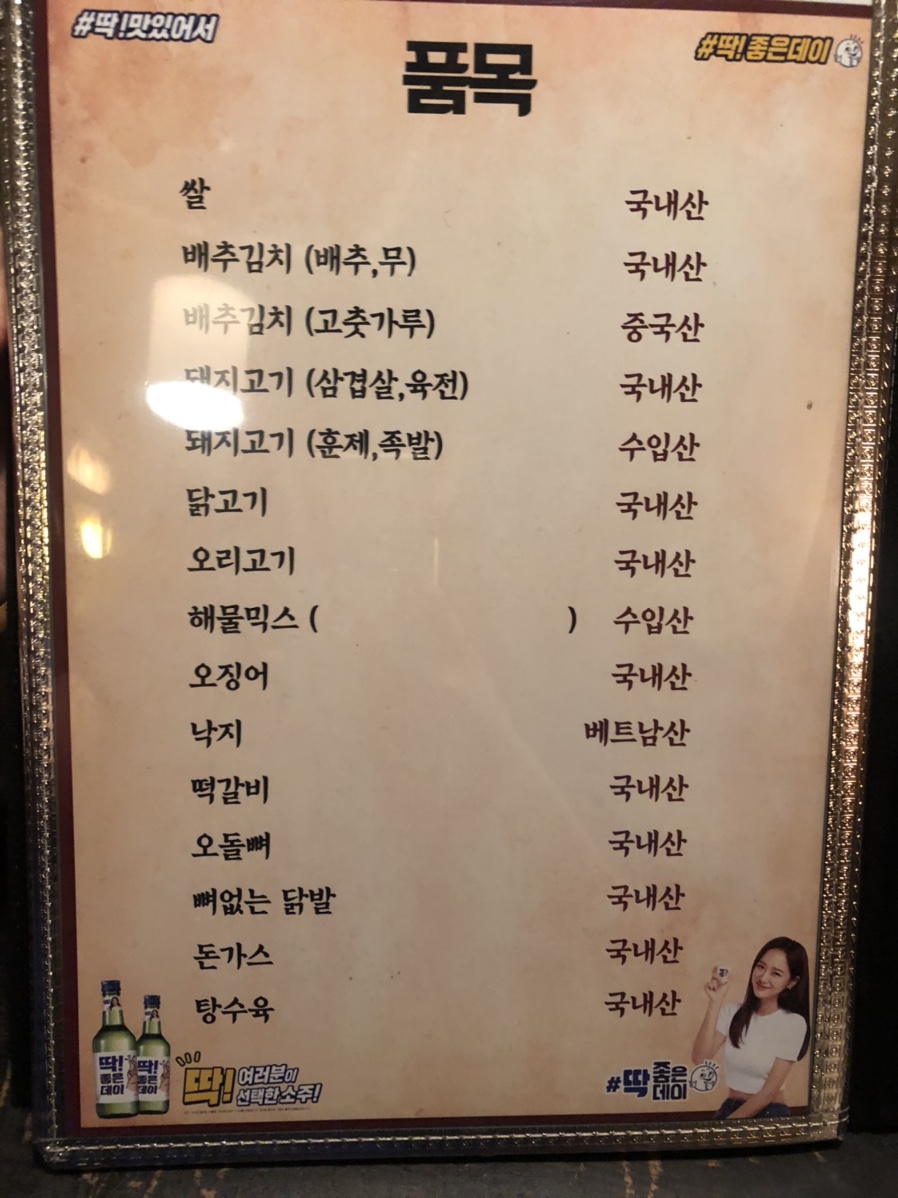 #딱!맛있어서
#딱! 좋은데이
품목
쌀 국내산
배추김치 (배추,무) 국내산
배추김치 (고춧가루) 중국산
돼지고기 (삼겹살,육전) 국내산
돼지고기 (훈제,족발) 수입산
닭고기 국내산
오리고기 국내산
해물믹스 ( ) 수입산
오징어 국내산
낙지 베트남산
떡갈비 국내산
오돌뼈 국내산
뼈없는 닭발 국내산
돈가스 국내산
탕수육 국내산
딱!
좋은
데이
딱!
좋은
데이
딱! 여러분이
선택한 소주!
#딱 좋은
데이